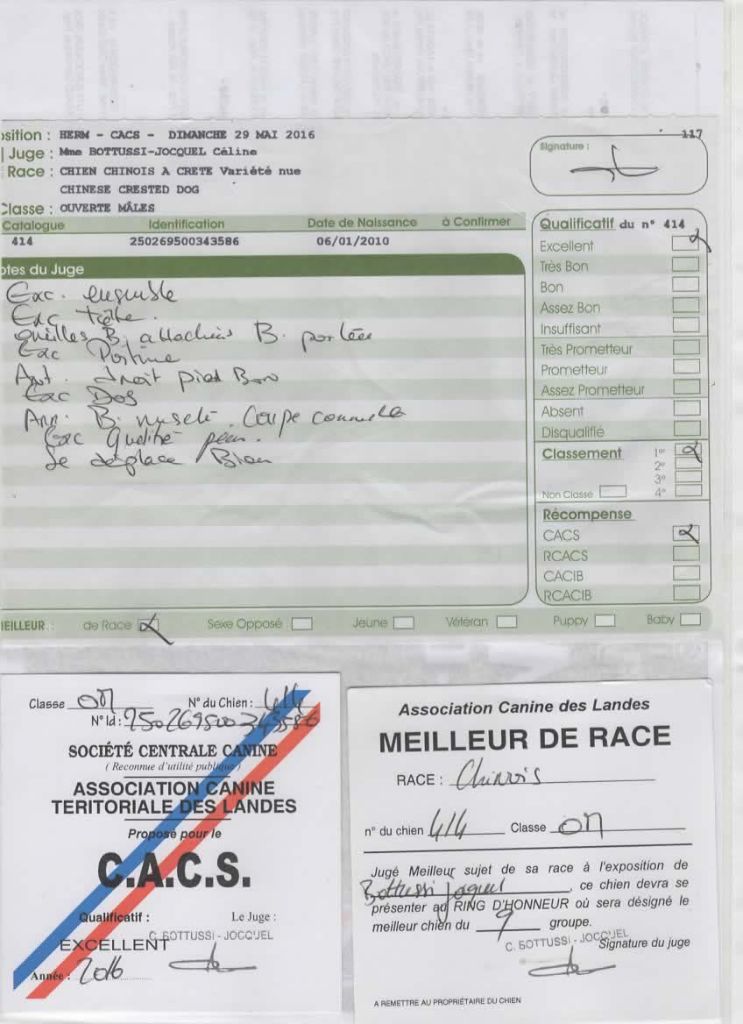 osition : HERM - CACS - DIMANCHE 29 MAI 2016
117
Juge : Mme BOTTUSSI-JOCQUEL Céline
Signature :
Race : CHIEN CHINOIS A CRETE Variété nue
CHINESE CRESTED DOG
Classe : OUVERTE MÂLES
Catalogue Identification Date de Naissance à Confirmer
414 250269500343586 06/01/2010
otes du Juge
Exc. ensemble
Exc tête.
oreilles B. attachées B. portées
Exc Poitrine
Ant. droit pied Bon
Exc Dos
Arr. B. musclé. Coupe
Exc qualité peau.
Se déplace Bien
Qualificatif du n° 414
Excellent
Très Bon
Bon
Assez Bon
Insuffisant
Très Prometteur
Prometteur
Assez Prometteur
Absent
Disqualifié
Classement 1er
2e
3e
Non Classé 4e
Récompense
CACS
RCACS
CACIB
RCACIB
EILLEUR : de Race Sexe Opposé Jeune Vétéran Puppy Baby
Classe ON N° du Chien : 414
N° Id : 250269500343586
SOCIÉTÉ CENTRALE CANINE
( Reconnue d'utilité publique )
ASSOCIATION CANINE
TERITORIALE DES LANDES
Proposé pour le
C.A.C.S.
Qualificatif : Le Juge :
C. BOTTUSSI - JOCQUEL
EXCELLENT
Année : 2016
Association Canine des Landes
MEILLEUR DE RACE
RACE : Chinois
n° du chien 414 Classe ON
Jugé Meilleur sujet de sa race à l'exposition de
Bottussi Joquel, ce chien devra se
présenter au RING D'HONNEUR où sera désigné le
meilleur chien du 9 groupe.
C. BOTTUSSI - JOCQUEL
Signature du juge
A REMETTRE AU PROPRIÉTAIRE DU CHIEN